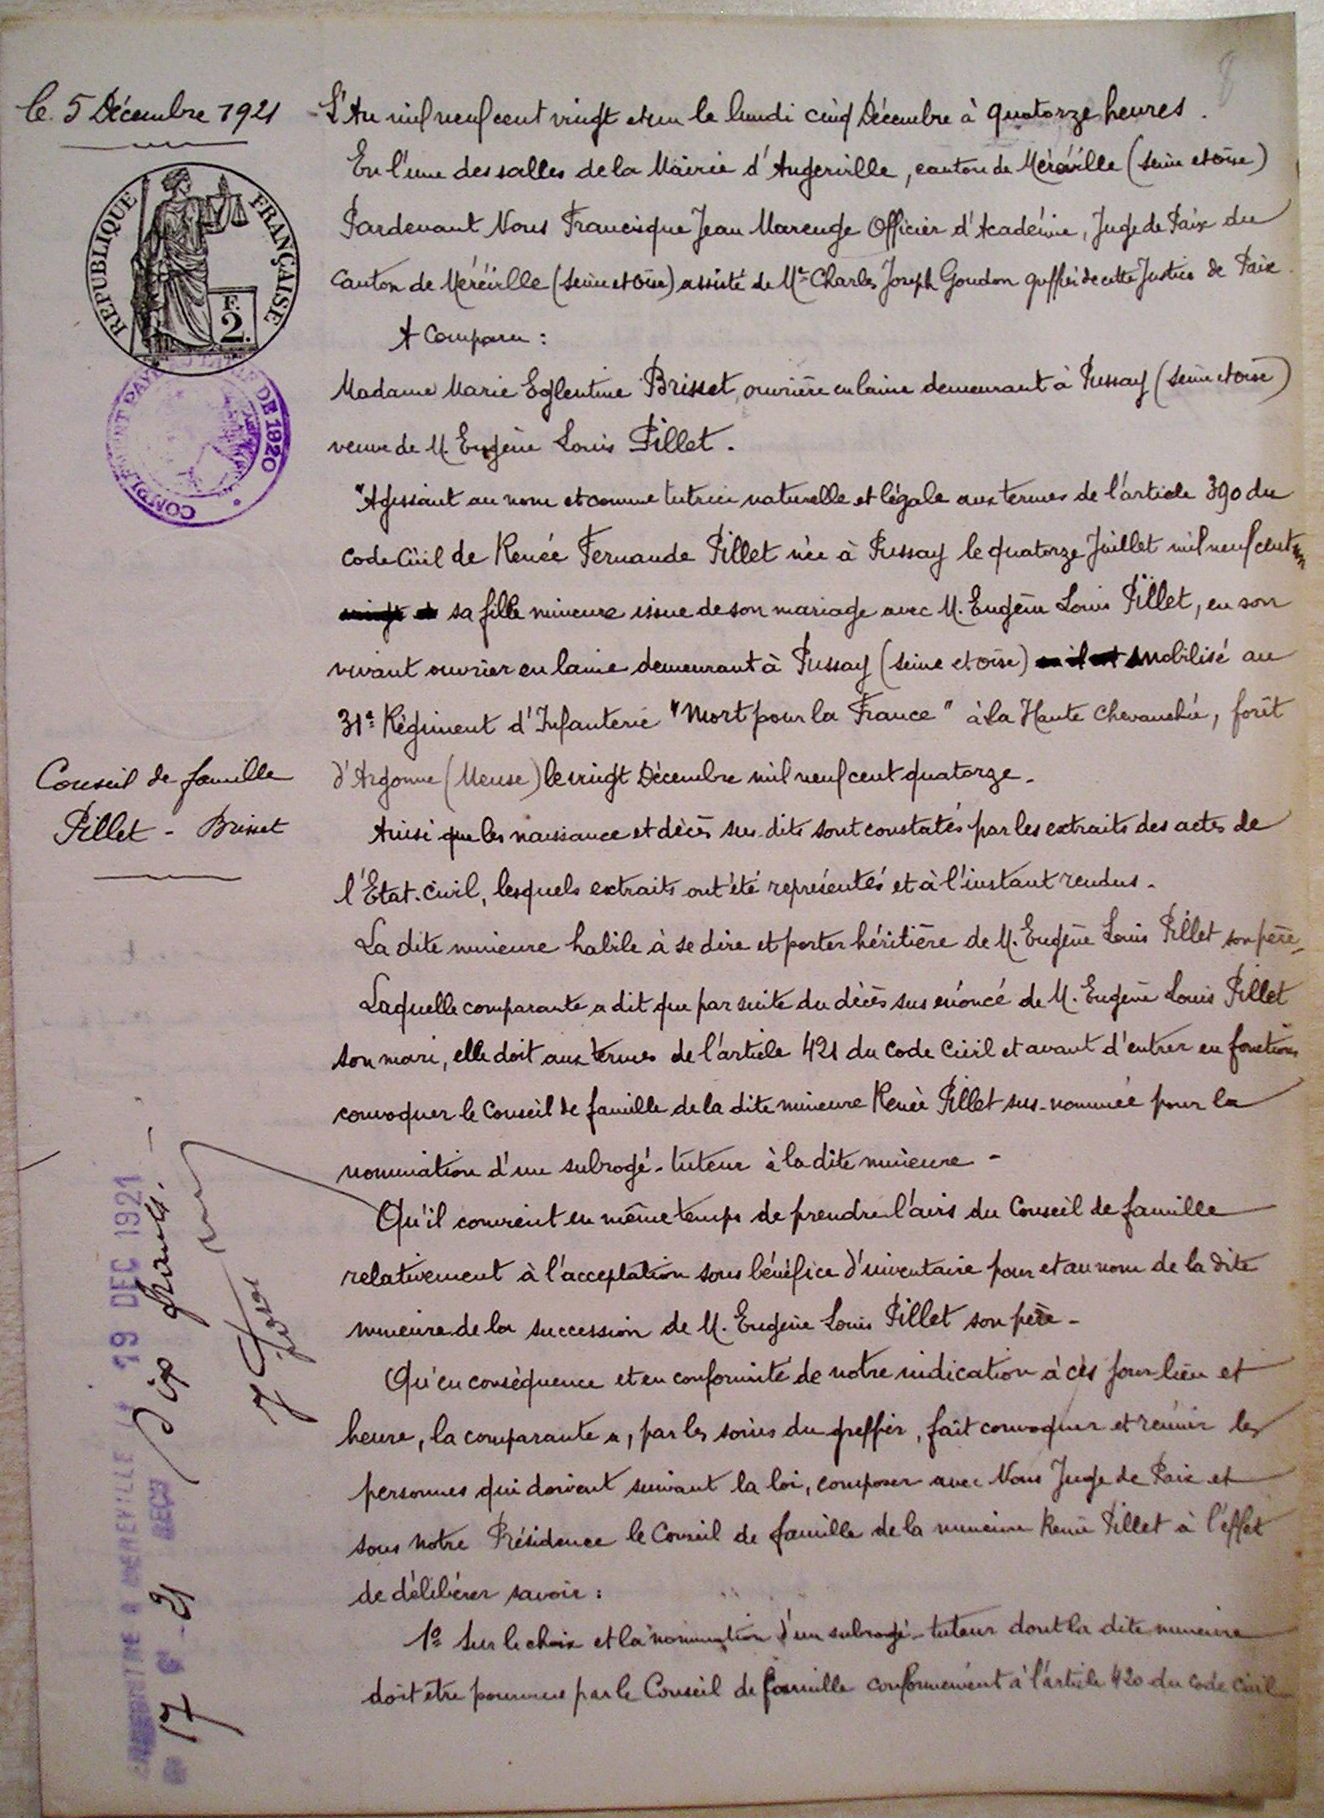 8
le 5 Décembre 1921
L'An mil neuf cent vingt et un le lundi cinq Décembre à quatorze heures.
En l'une des salles de la Mairie d'Angerville, canton de Méréville (Seine et Oise)
Pardevant Nous Francisque Jean Marenge Officier d'Académie, Juge de Paix du
Canton de Méréville (Seine et Oise) assisté de Mr Charles Joseph Goudon greffier de cette Justice de Paix.
RÉPUBLIQUE FRANÇAISE
F. 2.
A Comparu :
Madame Marie Eglentine Brisset, ouvrière en laine demeurant à Pussay (Seine et Oise)
veuve de M. Eugène Louis Pillet.
DE 1920
"Agissant au nom et comme tutrice naturelle et légale aux termes de l'article 390 du
Code Civil de Renée Fernande Pillet née à Pussay le quatorze Juillet mil neuf cent
sa fille mineure issue de son mariage avec M. Eugène Louis Pillet, en son
vivant ouvrier en laine demeurant à Pussay (Seine et Oise) mobilisé au
31e Régiment d'Infanterie "Mort pour la France" à la Haute Chevauchée, forêt
Conseil de famille
Pillet - Brisset
d'Argonne (Meuse) le vingt Décembre mil neuf cent quatorze.
Ainsi que les naissance et décès sus-dits sont constatés par les extraits des actes de
l'Etat-Civil, lesquels extraits ont été représentés et à l'instant rendus.
La dite mineure habile à se dire et porter héritière de M. Eugène Louis Pillet son père.
Laquelle comparante a dit que par suite du décès sus énoncé de M. Eugène Louis Pillet
son mari, elle doit aux termes de l'article 421 du Code Civil et avant d'entrer en fonctions
convoquer le Conseil de famille de la dite mineure Renée Pillet sus-nommée pour la
nomination d'un subrogé-tuteur à la dite mineure -
Qu'il convient en même temps de prendre l'avis du Conseil de famille
relativement à l'acceptation sous bénéfice d'inventaire pour et au nom de la dite
mineure de la succession de M. Eugène Louis Pillet son père -
Qu'en conséquence et en conformité de notre indication à ces jour lieu et
heure, la comparante a, par les soins du greffier, fait convoquer et réunir les
personnes qui doivent suivant la loi, composer avec Nous Juge de Paix et
sous notre Présidence le Conseil de famille de la mineure Renée Pillet à l'effet
de délibérer savoir :
1o Sur le choix et la nomination d'un subrogé-tuteur dont la dite mineure
doit être pourvue par le Conseil de famille conformément à l'article 420 du Code Civil
MEREVILLE LE 19 DEC 1921
REÇU dix francs.